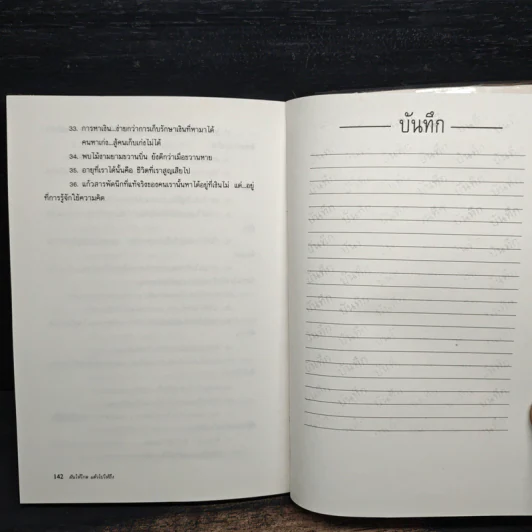 33. การหาเงิน...ง่ายกว่าการเก็บรักษาเงินที่หามาได้
คนหาเก่ง...สู้คนเก็บเก่งไม่ได้
34. พบไม้งามยามขวานบิ่น ยังดีกว่าเมื่อขวานหาย
35. อายุที่เราได้นั้นคือ ชีวิตที่เราสูญเสียไป
36. แก้วสารพัดนึกที่แท้จริงของคนเรานั้นหาได้อยู่ที่เงินไม่ แต่...อยู่
ที่การรู้จักใช้ความคิด
142
บันทึก